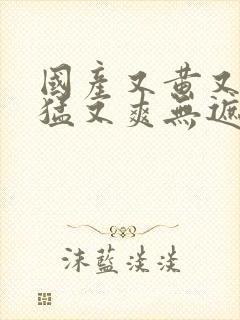 國產又黃又
猛又爽無遮
沫藍淡淡